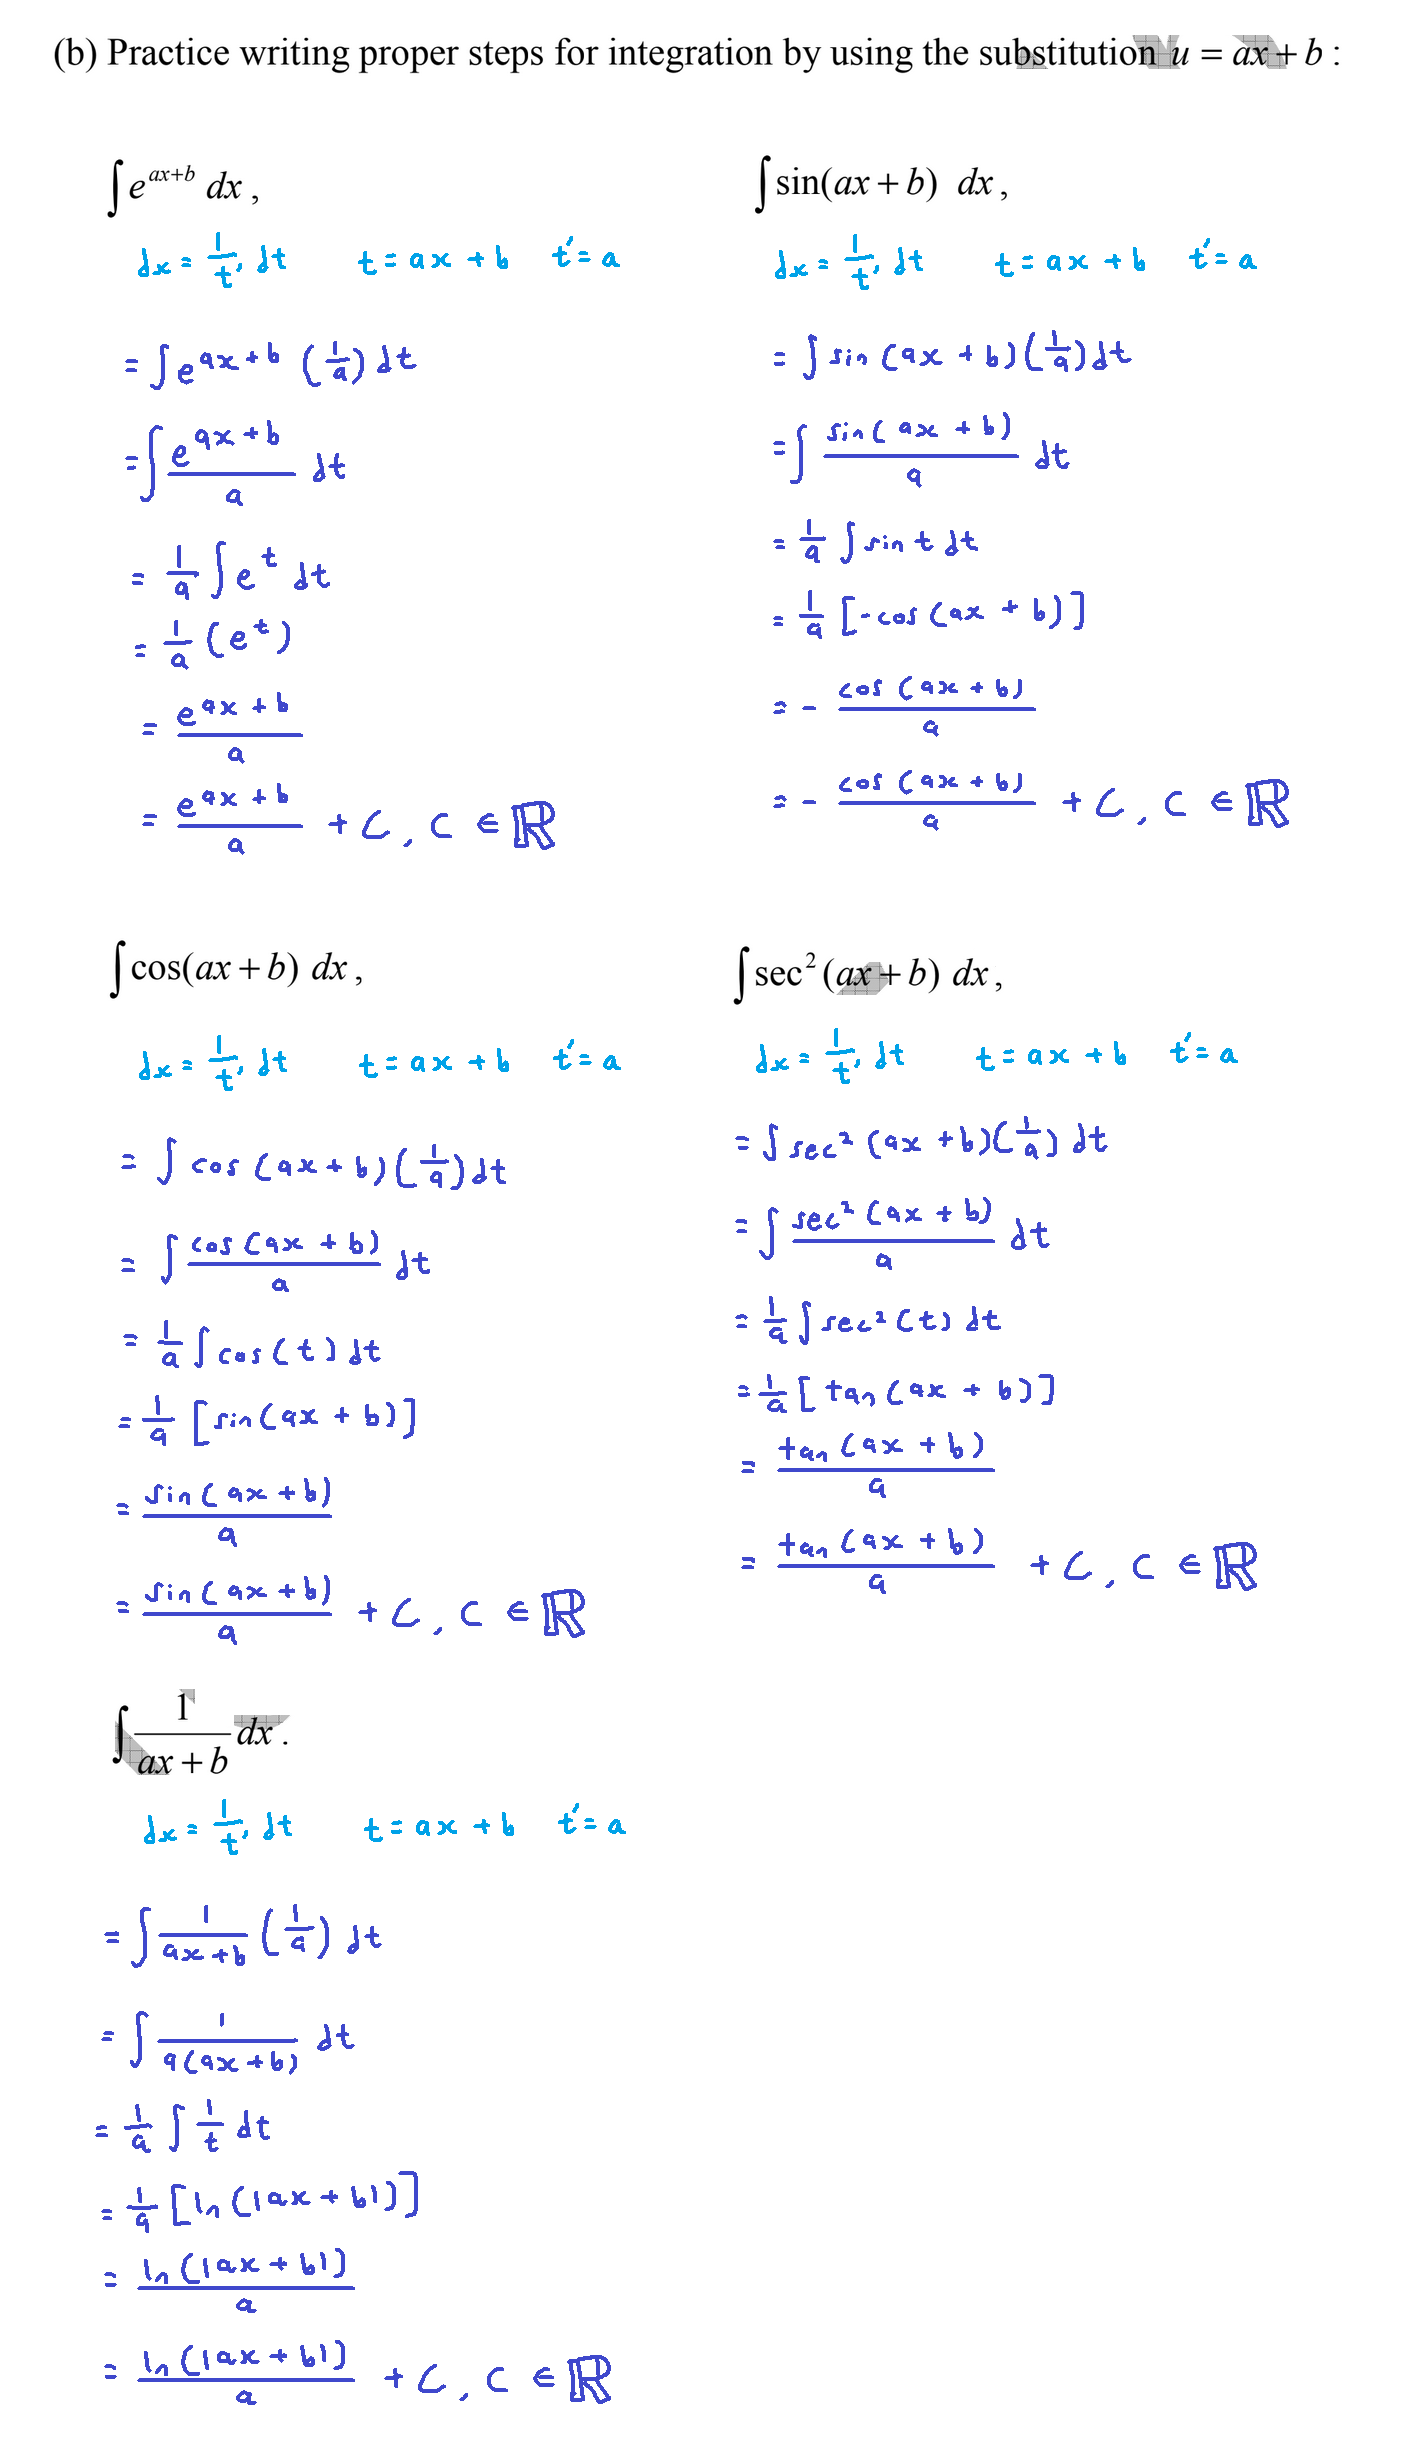 (b) Practice writing proper steps for integration by using the substitution u = ax + b :
∫ e^{ax+b} dx ,
dx = 1/t' dt t = ax + b t' = a
= ∫ e^{ax+b} (1/a) dt
= ∫ e^{ax+b}/a dt
= 1/a ∫ e^t dt
= 1/a (e^t)
= e^{ax+b}/a
= e^{ax+b}/a + C, C ∈ ℝ
∫ sin(ax + b) dx ,
dx = 1/t' dt t = ax + b t' = a
= ∫ sin (ax + b)(1/a) dt
= ∫ sin(ax + b)/a dt
= 1/a ∫ sin t dt
= 1/a [-cos (ax + b)]
= - cos (ax + b)/a
= - cos (ax + b)/a + C, C ∈ ℝ
∫ cos(ax + b) dx ,
dx = 1/t' dt t = ax + b t' = a
= ∫ cos (ax + b)(1/a) dt
= ∫ cos (ax + b)/a dt
= 1/a ∫ cos(t) dt
= 1/a [sin(ax + b)]
= sin(ax + b)/a
= sin(ax + b)/a + C, C ∈ ℝ
∫ sec² (ax + b) dx ,
dx = 1/t' dt t = ax + b t' = a
= ∫ sec² (ax + b)(1/a) dt
= ∫ sec² (ax + b)/a dt
= 1/a ∫ sec² (t) dt
= 1/a [tan (ax + b)]
= tan (ax + b)/a
= tan (ax + b)/a + C, C ∈ ℝ
∫ 1/(ax + b) dx .
dx = 1/t' dt t = ax + b t' = a
= ∫ 1/(ax + b) (1/a) dt
= ∫ 1/(a(ax + b)) dt
= 1/a ∫ 1/t dt
= 1/a [ln (|ax + b|)]
= ln (|ax + b|)/a
= ln (|ax + b|)/a + C, C ∈ ℝ